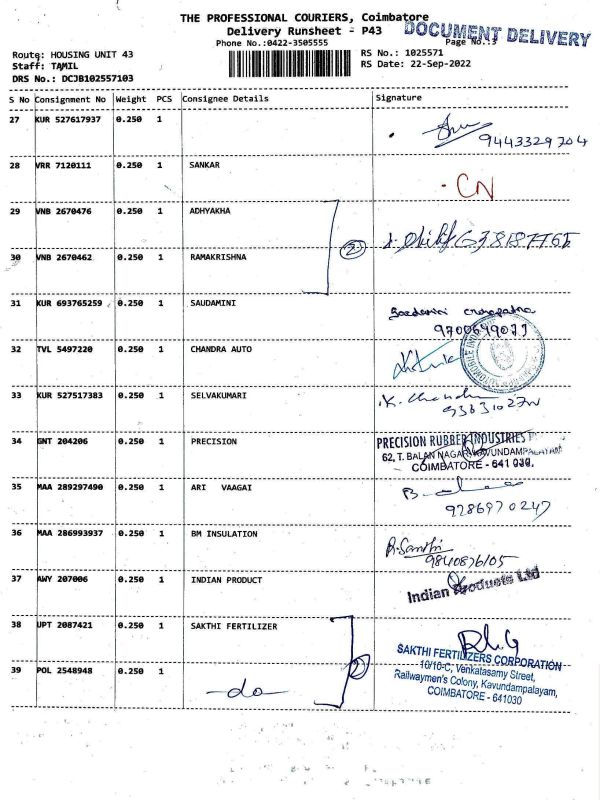 THE PROFESSIONAL COURIERS, Coimbatore
Delivery Runsheet - P43
DOCUMENT DELIVERY
Phone No.:0422-3505555
Page No.:3
Route: HOUSING UNIT 43
RS No.: 1025571
Staff: TAMIL
RS Date: 22-Sep-2022
DRS No.: DCJB102557103
S No Consignment No Weight PCS Consignee Details Signature
27 KUR 527617937 0.250 1
9443329704
28 VRR 7120111 0.250 1 SANKAR
CN
29 VNB 2670476 0.250 1 ADHYAKHA
2
30 VNB 2670462 0.250 1 RAMAKRISHNA
31 KUR 693765259 0.250 1 SAUDAMINI
9700699033
32 TVL 5497220 0.250 1 CHANDRA AUTO
33 KUR 527517383 0.250 1 SELVAKUMARI
34 GNT 204206 0.250 1 PRECISION
PRECISION RUBBER INDUSTRIES
62, T. BALAN NAGAR, KAVUNDAMPALAYAM
COIMBATORE - 641 030.
35 MAA 289297490 0.250 1 ARI VAAGAI
9286970247
36 MAA 286993937 0.250 1 BM INSULATION
R. Santhi
9840876105
37 AWY 207006 0.250 1 INDIAN PRODUCT
Indian Products Ltd
38 UPT 2087421 0.250 1 SAKTHI FERTILIZER
2
39 POL 2548948 0.250 1
-do-
SAKTHI FERTILIZERS CORPORATION
10/10-C, Venkatasamy Street,
Railwaymen's Colony, Kavundampalayam,
COIMBATORE - 641030